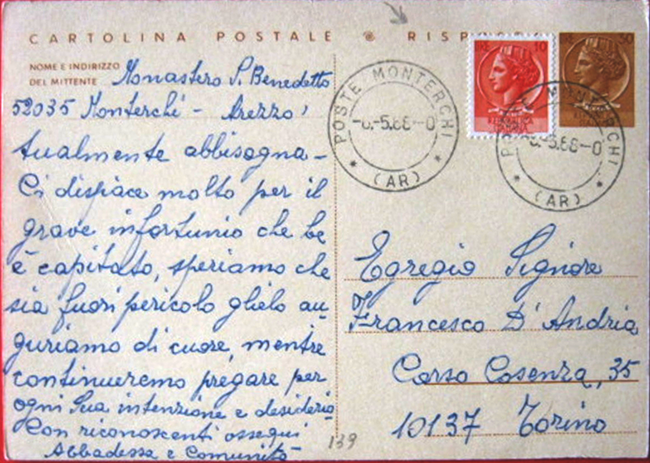 CARTOLINA POSTALE
NOME E INDIRIZZO
DEL MITTENTE
Monastero S. Benedetto
52035 Monterchi - Arezzo
tualmente abbisogna-
Ci dispiace molto per il
grave infortunio che be
è capitato, speriamo che
sia fuori pericolo glielo au
guriamo di cuore, mentre
continueremo pregare per
ogni Sua intenzione e desiderio
Con riconoscenti ossequi
Abbadessa e Comunità
139
10
POSTE MONTERCHI
-6.-5.66-0
(AR)
MONTERCHI
5.66-0
(AR)
Egregio Signore
Francesco D'Andria
Corso Cosenza, 35
10137 Torino